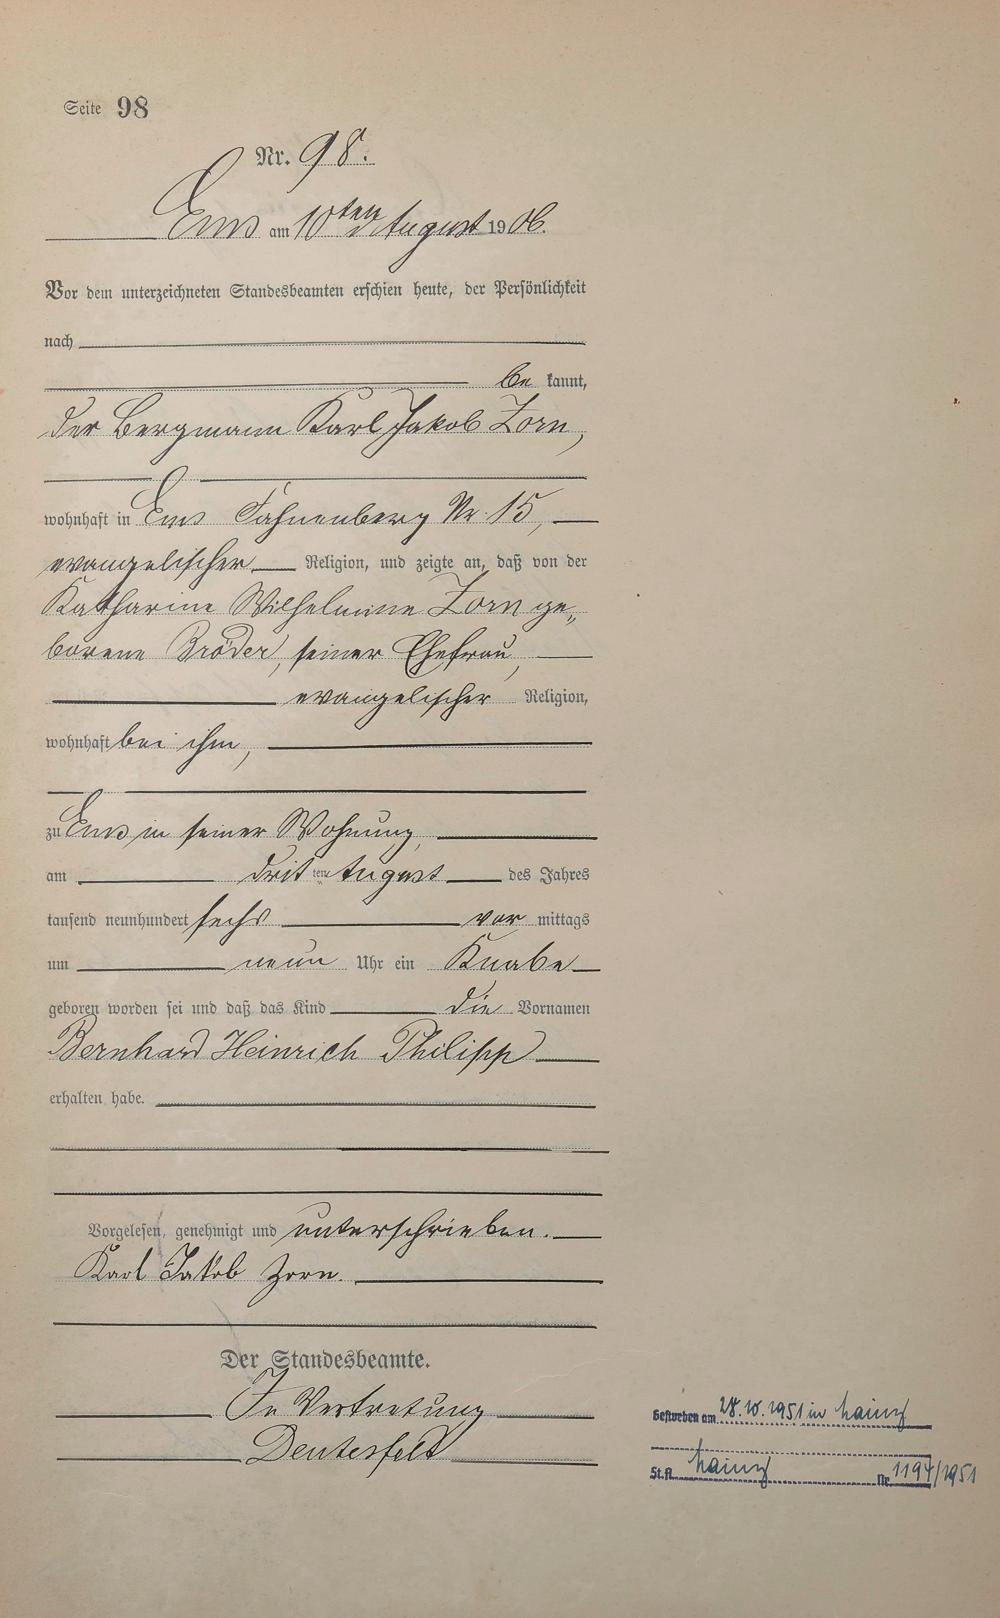 Seite 98
Nr. 98.
Ems am 10ten August 1906.
Vor dem unterzeichneten Standesbeamten erschien heute, der Persönlichkeit
nach
be kannt,
der Bergmann Karl Jakob Zorn,
wohnhaft in Ems Fahnenberg Nr. 15,
evangelischer Religion, und zeigte an, daß von der
Katharine Wilhelmine Zorn ge„
borene Bröder, seiner Ehefrau,
evangelischer Religion,
wohnhaft bei ihm,
zu Ems in seiner Wohnung,
am dritten August des Jahres
tausend neunhundert sechs vor mittags
um neun Uhr ein Knabe
geboren worden sei und daß das Kind die Vornamen
Bernhard Heinrich Philipp
erhalten habe.
Vorgelesen, genehmigt und unterschrieben.
Karl Jakob Zorn.
Der Standesbeamte.
In Vertretung
Deutesfelt
Gestorben am 28.10.1951 in Mainz
St.A. Mainz Nr. 1194/1951